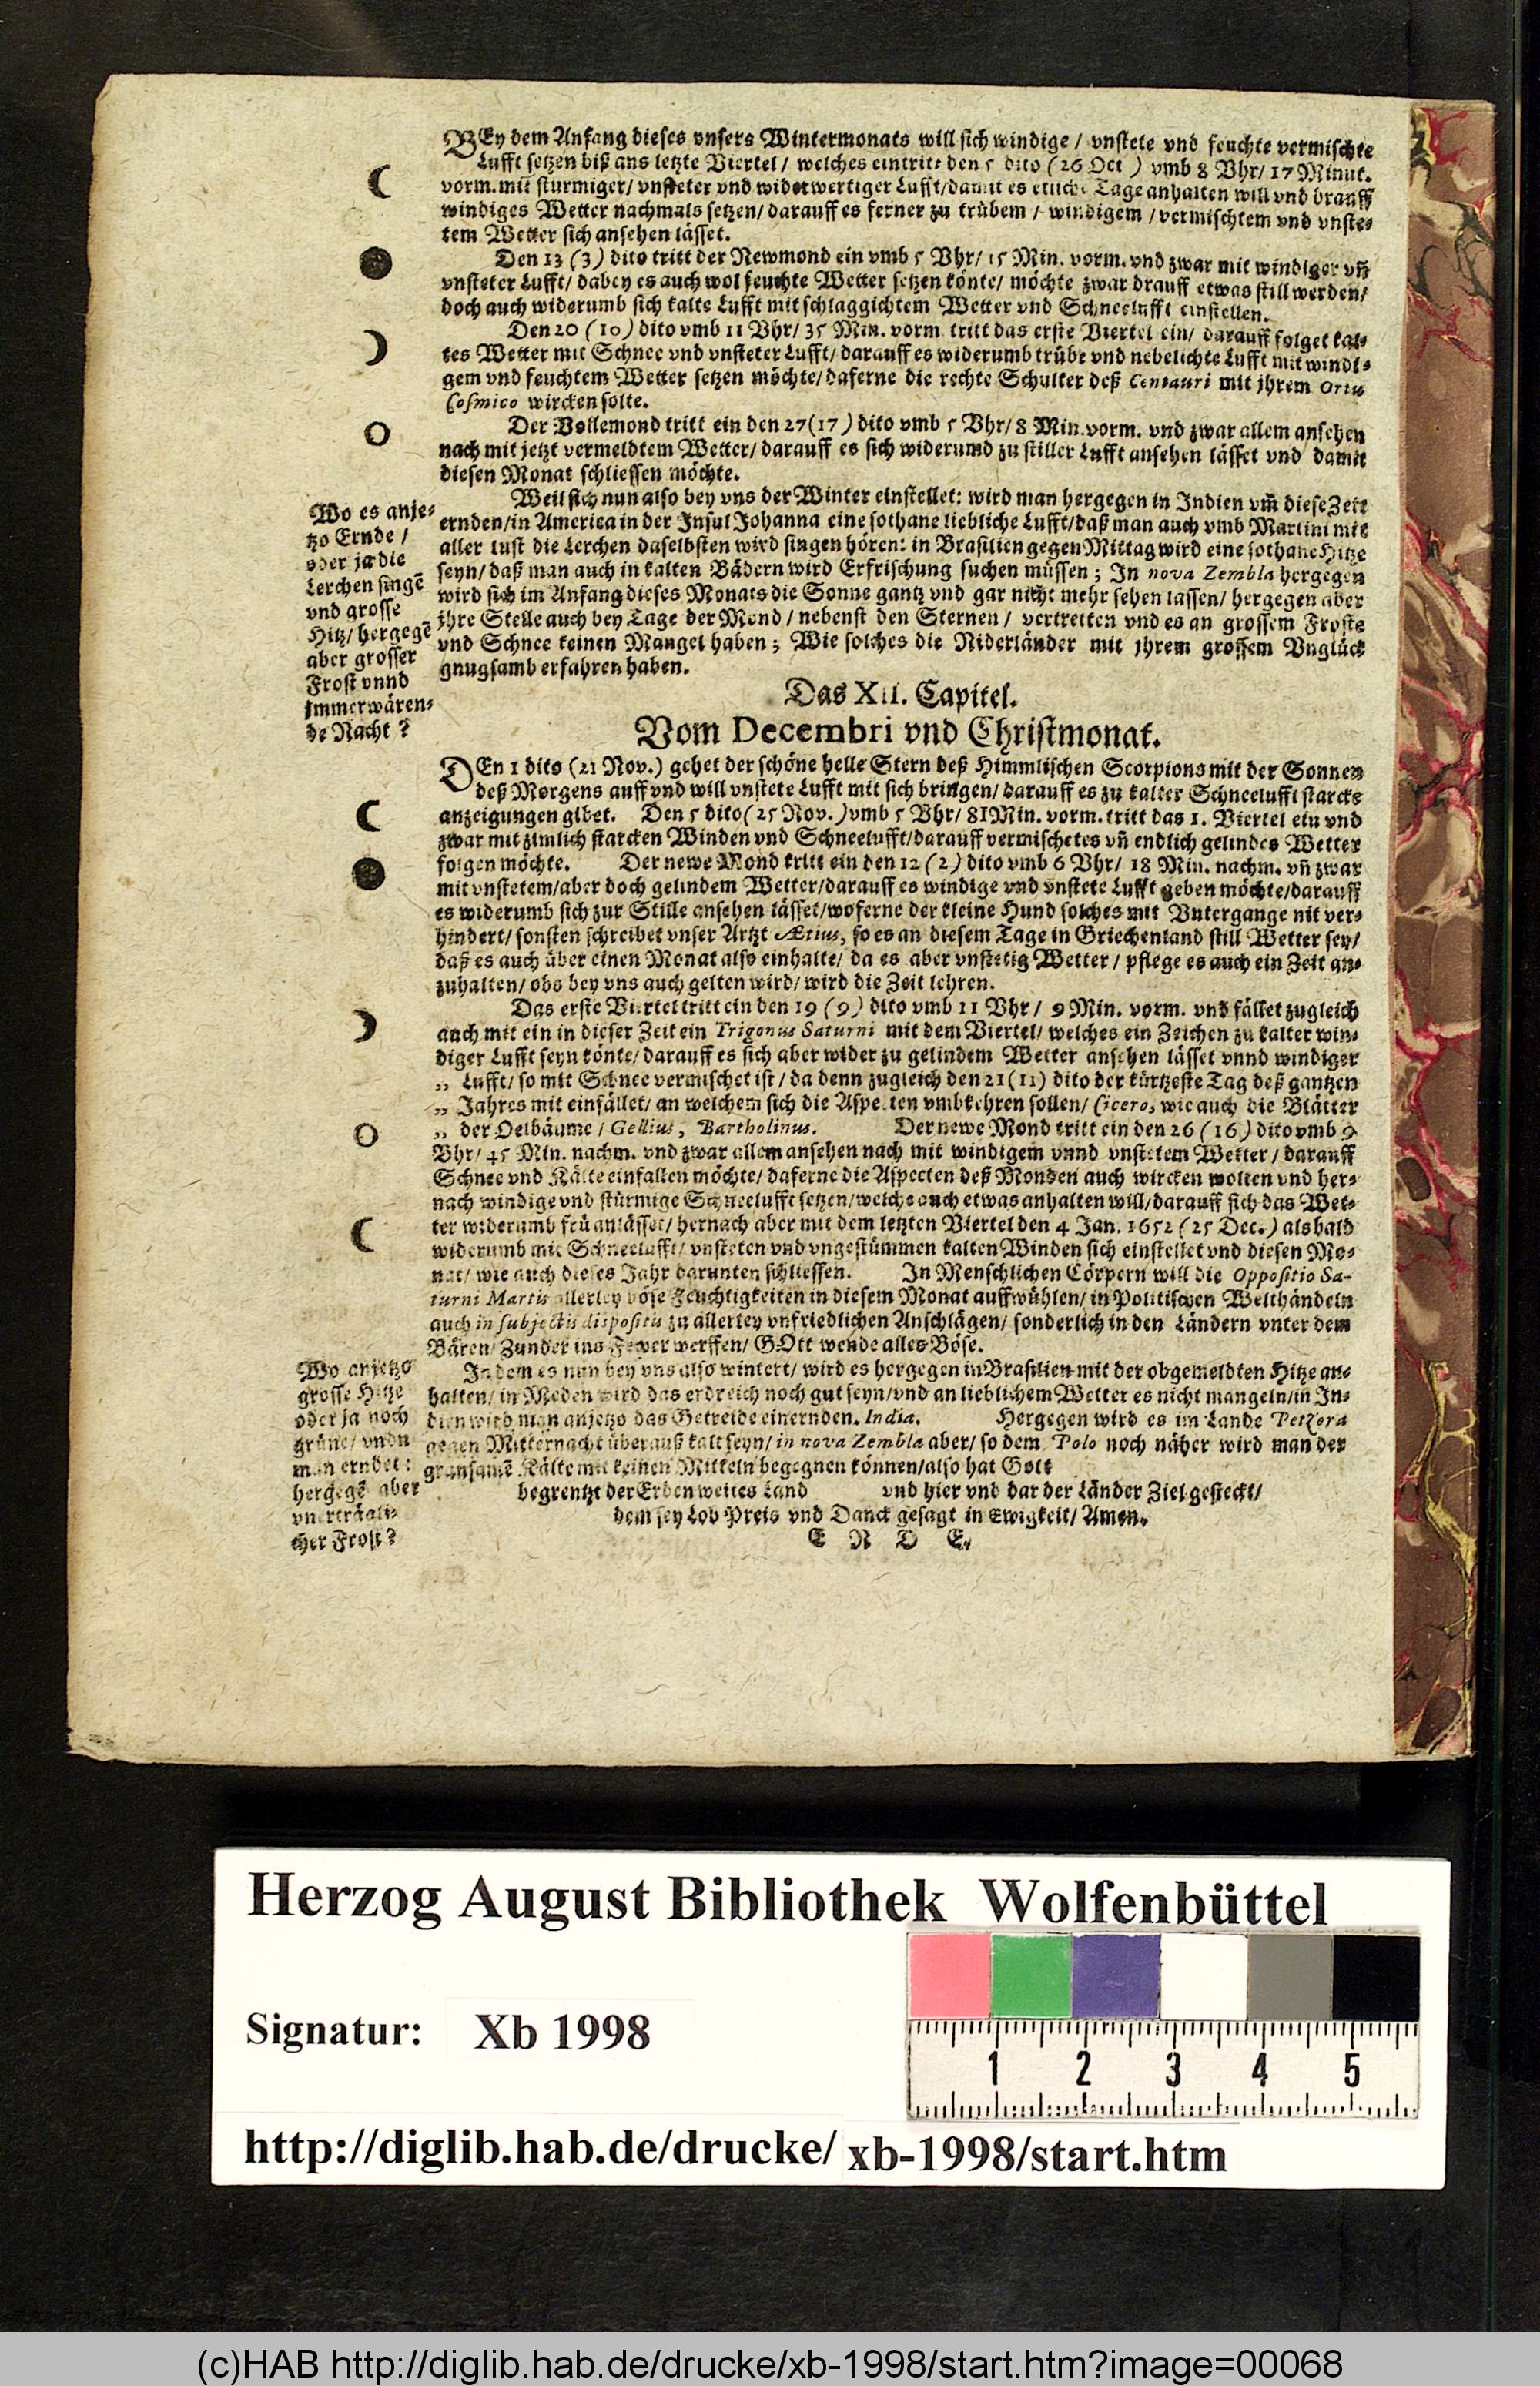 BEy dem Anfang dieses vnsers Wintermonats will sich windige / vnstete vnd feuchte vermischte
Lufft setzen biß ans letzte Viertel / welches eintritt den 5 dito (26 Oct ) vmb 8 Vhr/ 17 Minut.
vorm. mit stürmiger/ vnsteter vnd widerwertiger Lufft/ damit es etliche Tage anhalten will vnd drauff
windiges Wetter nachmals setzen/ darauff es ferner zu trübem / windigem / vermischtem vnd vnste-
tem Wetter sich ansehen lässet.
Den 13 (3) dito tritt der Newmond ein vmb 5 Vhr/ 15 Min. vorm. vnd zwar mit windiger vñ
vnsteter Lufft/ dabey es auch wol feuchte Wetter setzen könte/ möchte zwar drauff etwas still werden/
doch auch widerumb sich kalte Lufft mit schlaggichtem Wetter vnd Schneelufft einstellen.
Den 20 (10) dito vmb 11 Vhr/ 35 Min. vorm tritt das erste Viertel ein/ darauff folget kal-
tes Wetter mit Schnee vnd vnsteter Lufft/ darauff es widerumb trübe vnd nebelichte Lufft mit windi-
gem vnd feuchtem Wetter setzen möchte/ daferne die rechte Schulter deß Centauri mit jhrem Ortu
Cosmico wircken solte.
Der Vollemond tritt ein den 27(17) dito vmb 5 Vhr/ 8 Min. vorm. vnd zwar allem ansehen
nach mit jetzt vermeldtem Wetter/ darauff es sich widerumd zu stiller Lufft ansehen lässet vnd damit
diesen Monat schliessen möchte.
Wo es anje-
tzo Ernde /
oder ja die
Lerchen singē
vnd grosse
Hitz/ hergegē
aber grosser
Frost vnnd
jmmerwären-
de Nacht ?
Weil sich nun also bey vns der Winter einstellet: wird man hergegen in Indien vm̄ diese Zeit
ernden/ in America in der Insul Johanna eine sothane liebliche Lufft/ daß man auch vmb Martini mit
aller lust die Lerchen daselbsten wird singen hören: in Brasilien gegen Mittag wird eine sothane Hitze
seyn/ daß man auch in kalten Bädern wird Erfrischung suchen müssen ; In nova Zembla hergegen
wird sich im Anfang dieses Monats die Sonne gantz vnd gar nicht mehr sehen lassen/ hergegen aber
jhre Stelle auch bey Tage der Mond / nebenst den Sternen / vertretten vnd es an grossem Froste
vnd Schnee keinen Mangel haben ; Wie solches die Niderländer mit jhrem grossem Vnglück
gnugsamb erfahren haben.
Das XII. Capitel.
Vom Decembri vnd Christmonat.
DEn 1 dito (21 Nov.) gehet der schöne helle Stern deß Himmlischen Scorpions mit der Sonnen
deß Morgens auff vnd will vnstete Lufft mit sich bringen/ darauff es zu kalter Schneelufft starcke
anzeigungen gibet. Den 5 dito (25 Nov.) vmb 5 Vhr/ 81 Min. vorm. tritt das 1. Viertel ein vnd
zwar mit zimlich starcken Winden vnd Schneelufft/ darauff vermischetes vñ endlich gelindes Wetter
folgen möchte. Der newe Mond tritt ein den 12 (2) dito vmb 6 Vhr/ 18 Min. nachm. vñ zwar
mit vnstetem/ aber doch gelindem Wetter/ darauff es windige vnd vnstete Lufft geben möchte/ darauff
es widerumb sich zur Stille ansehen lässet/ woferne der kleine Hund solches mit Vntergange nit ver-
hindert/ sonsten schreibet vnser Artzt Ætius, so es an diesem Tage in Griechenland still Wetter sey/
daß es auch über einen Monat also einhalte/ da es aber vnstetig Wetter / pflege es auch ein Zeit an-
zuhalten/ obs bey vns auch gelten wird/ wird die Zeit lehren.
Das erste Viertel tritt ein den 19 (9) dito vmb 11 Vhr / 9 Min. vorm. vnd fället zugleich
auch mit ein in dieser Zeit ein Trigonus Saturni mit dem Viertel/ welches ein Zeichen zu kalter win-
diger Lufft seyn könte/ darauff es sich aber wider zu gelindem Wetter ansehen lässet vnnd windiger
„ Lufft/ so mit Schnee vermischet ist / da denn zugleich den 21 (11) dito der kürtzeste Tag deß gantzen
„ Jahres mit einfället/ an welchem sich die Aspecten vmbkehren sollen/ Cicero, wie auch die Blätter
„ der Oelbäume / Gellius, Bartholinus. Der newe Mond tritt ein den 26 (16) dito vmb 9
Vhr/ 45 Min. nachm. vnd zwar allem ansehen nach mit windigem vnnd vnstetem Wetter / darauff
Schnee vnd Kälte einfallen möchte/ daferne die Aspecten deß Monden auch wircken wolten vnd her-
nach windige vnd stürmige Schneelufft setzen/ welche auch etwas anhalten will/ darauff sich das Wet-
ter widerumb frü anlässet/ hernach aber mit dem letzten Viertel den 4 Jan. 1652 (25 Dec.) alsbald
widerumb mit Schneelufft/ vnsteten vnd vngestümmen kalten Winden sich einstellet vnd diesen Mo-
nat/ wie auch dieses Jahr darunten schliessen. In Menschlichen Cörpern will die Oppositio Sa-
turni Martis allerley böse Feuchtigkeiten in diesem Monat auffwühlen/ in Politischen Welthändeln
auch in subjectis dispositis zu allerley vnfriedlichen Anschlägen/ sonderlich in den Ländern vnter dem
Bären/ Zunder ins Fewer werffen/ GOtt wende alles Böse.
Wo anjetzo
grosse Hitze
oder ja noch
grüne/ vnd
man erndet:
hergegē aber
vnerträgli-
cher Frost ?
Indem es nun bey vns also wintert/ wird es hergegen in Brasilien mit der obgemeldten Hitze an-
halten/ in Meden wird das erdreich noch gut seyn/ vnd an lieblichem Wetter es nicht mangeln/ in In-
dien wird man anjetzo das Getreide einernden. India. Hergegen wird es im Lande Petzora
gegen Mitternacht überauß kalt seyn/ in nova Zembla aber/ so dem Polo noch näher wird man der
grausamē Kälte mit keinen Mitteln begegnen können/ also hat Gott
begrentzt der Erden weites Land vnd hier vnd dar der Länder Ziel gesteckt/
dem sey Lob Preis vnd Danck gesagt in Ewigkeit/ Amen.
E N D E.
Herzog August Bibliothek Wolfenbüttel
Signatur: Xb 1998
1 2 3 4 5
http://diglib.hab.de/drucke/ xb-1998/start.htm
(c)HAB http://diglib.hab.de/drucke/xb-1998/start.htm?image=00068